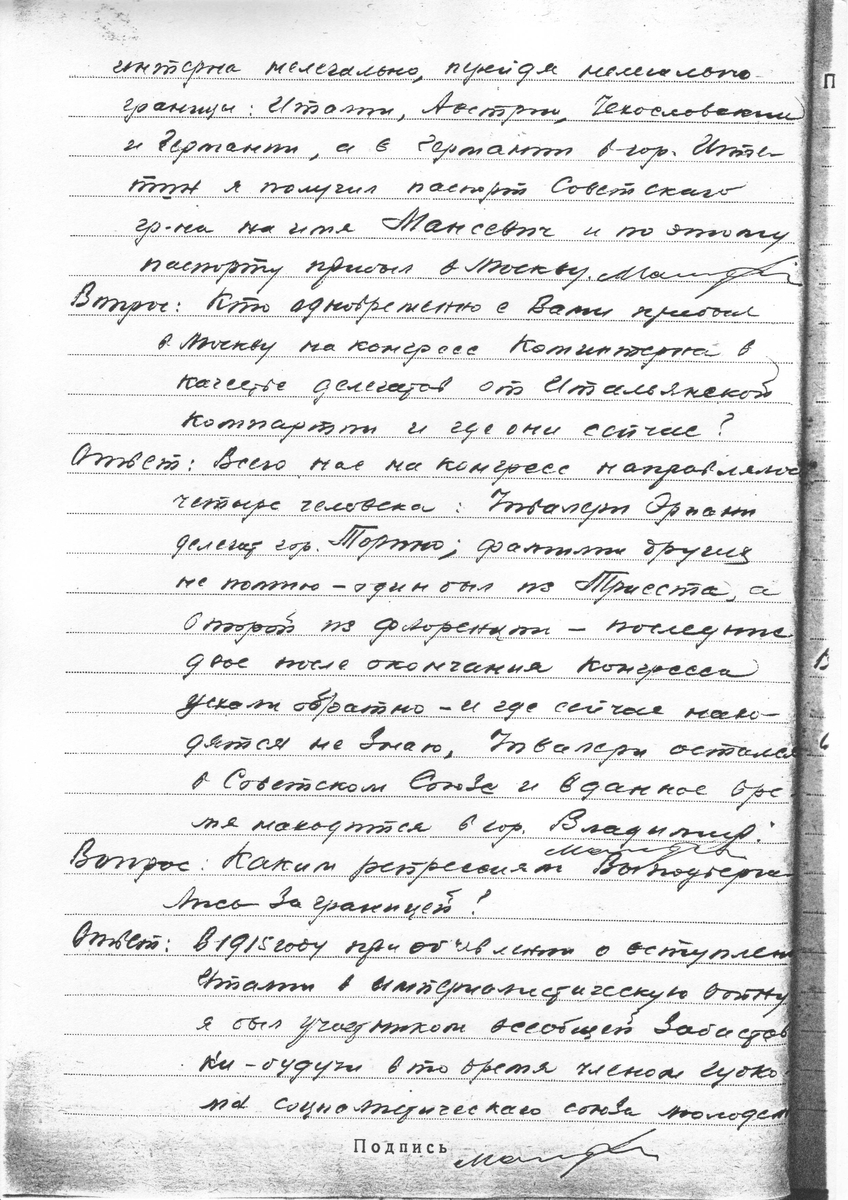 интерна нелегально, пройдя нелегально
границы: Италии, Австрии, Чехословакии
и Германии, а в Германии в гор.Ште-
тин я получил паспорт Советскаго
гр-на на имя Мансевич и по этому
паспорту прибыл в Москву.
Вопрос: Кто одновременно с Вами прибыл
в Москву на конгресс Коминтерна в
качестве делегатов от Итальянской
Компартии и где они сейчас?
Ответ: Всего нас на конгресс направлялось
четыре человека: делегат гор. Торино; фамилии других
не помню – один был из Триеста, а
второй из Флоренции – последние
двое после окончания Конгресса
уехали обратно – и где сейчас нахо-
дятся не знаю, остался
в Советском Союзе и в данное вре-
мя находится в гор. Владимир.
Вопрос: Каким репрессиям Вы подверга-
лись за границей?
Ответ: В 1915 году при об'явлении о вступлен
Италии в империалистическую войну
я был участником всеобщей забастов
ки – будучи в то время членом губко-
ма социалистическаго союза молодеж
Подпись